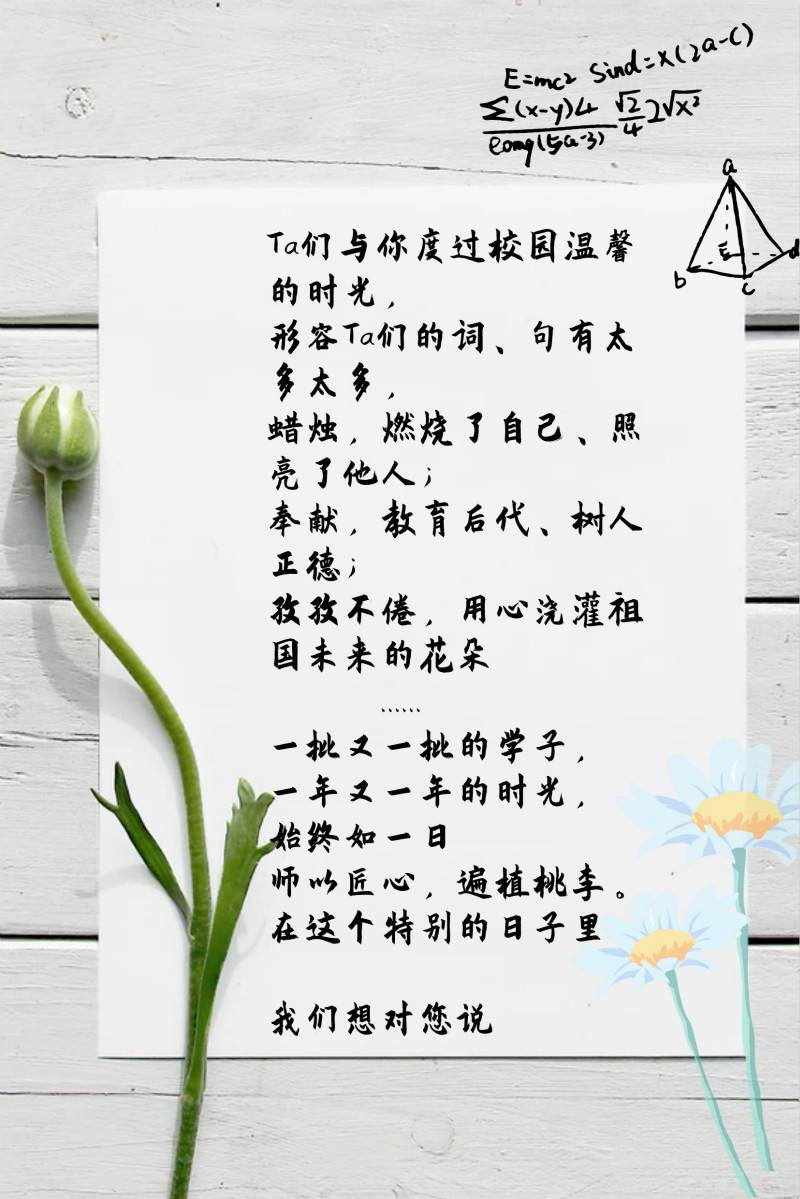 E=mc2 Sind=x(2a-c)
∑(x-y)4 √2 2√x²
4
a
b
c
d
E
Ta们与你度过校园温馨
的时光，
形容Ta们的词、句有太
多太多，
蜡烛，燃烧了自己、照
亮了他人；
奉献，教育后代、树人
正德；
孜孜不倦，用心浇灌祖
国未来的花朵
......
一批又一批的学子，
一年又一年的时光，
始终如一日
师以匠心，遍植桃李。
在这个特别的日子里
我们想对您说